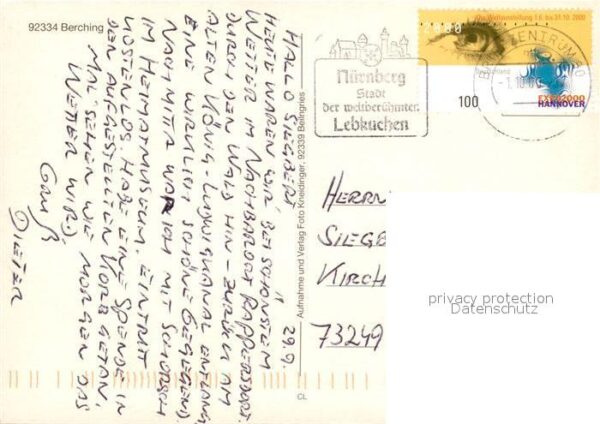 92334 Berching
HALLO SIEGBERT, 29.9.
HEUTE WAREN WIR, BEI SCHÖNSTEM
WETTER IM NACHBARORT RAPPERSDORF.
DURCH DEN WALD HIN - ZURÜCK AM
ALTEN KÖNIG-LUDWIGKANAL ENTLANG,
EINE WIRKLICH SCHÖNE GEGEGEND).
NACHMITTAG WAR ICH MIT SCHORSCH
IM HEIMATMUSEUM. EINTRITT
KOSTENLOS. HABE EINE SPENDE IN
DEN AUFGESTELLTEN KORB GETAN.
MAL SEHEN WIE MORGEN DAS
WETTER WIRD.
Gruß
DIETER
Aufnahme und Verlag Foto Kneidinger, 92339 Beilngries
CL
Nürnberg
Stadt
der weltberühmten
Lebkuchen
BRIEFZENTRUM 90
Die Weltausstellung 1.6. bis 31.10.2000
100
EXPO2000
HANNOVER
HERRN
SIEGB
KIRCH
73249
privacy protection
Datenschutz